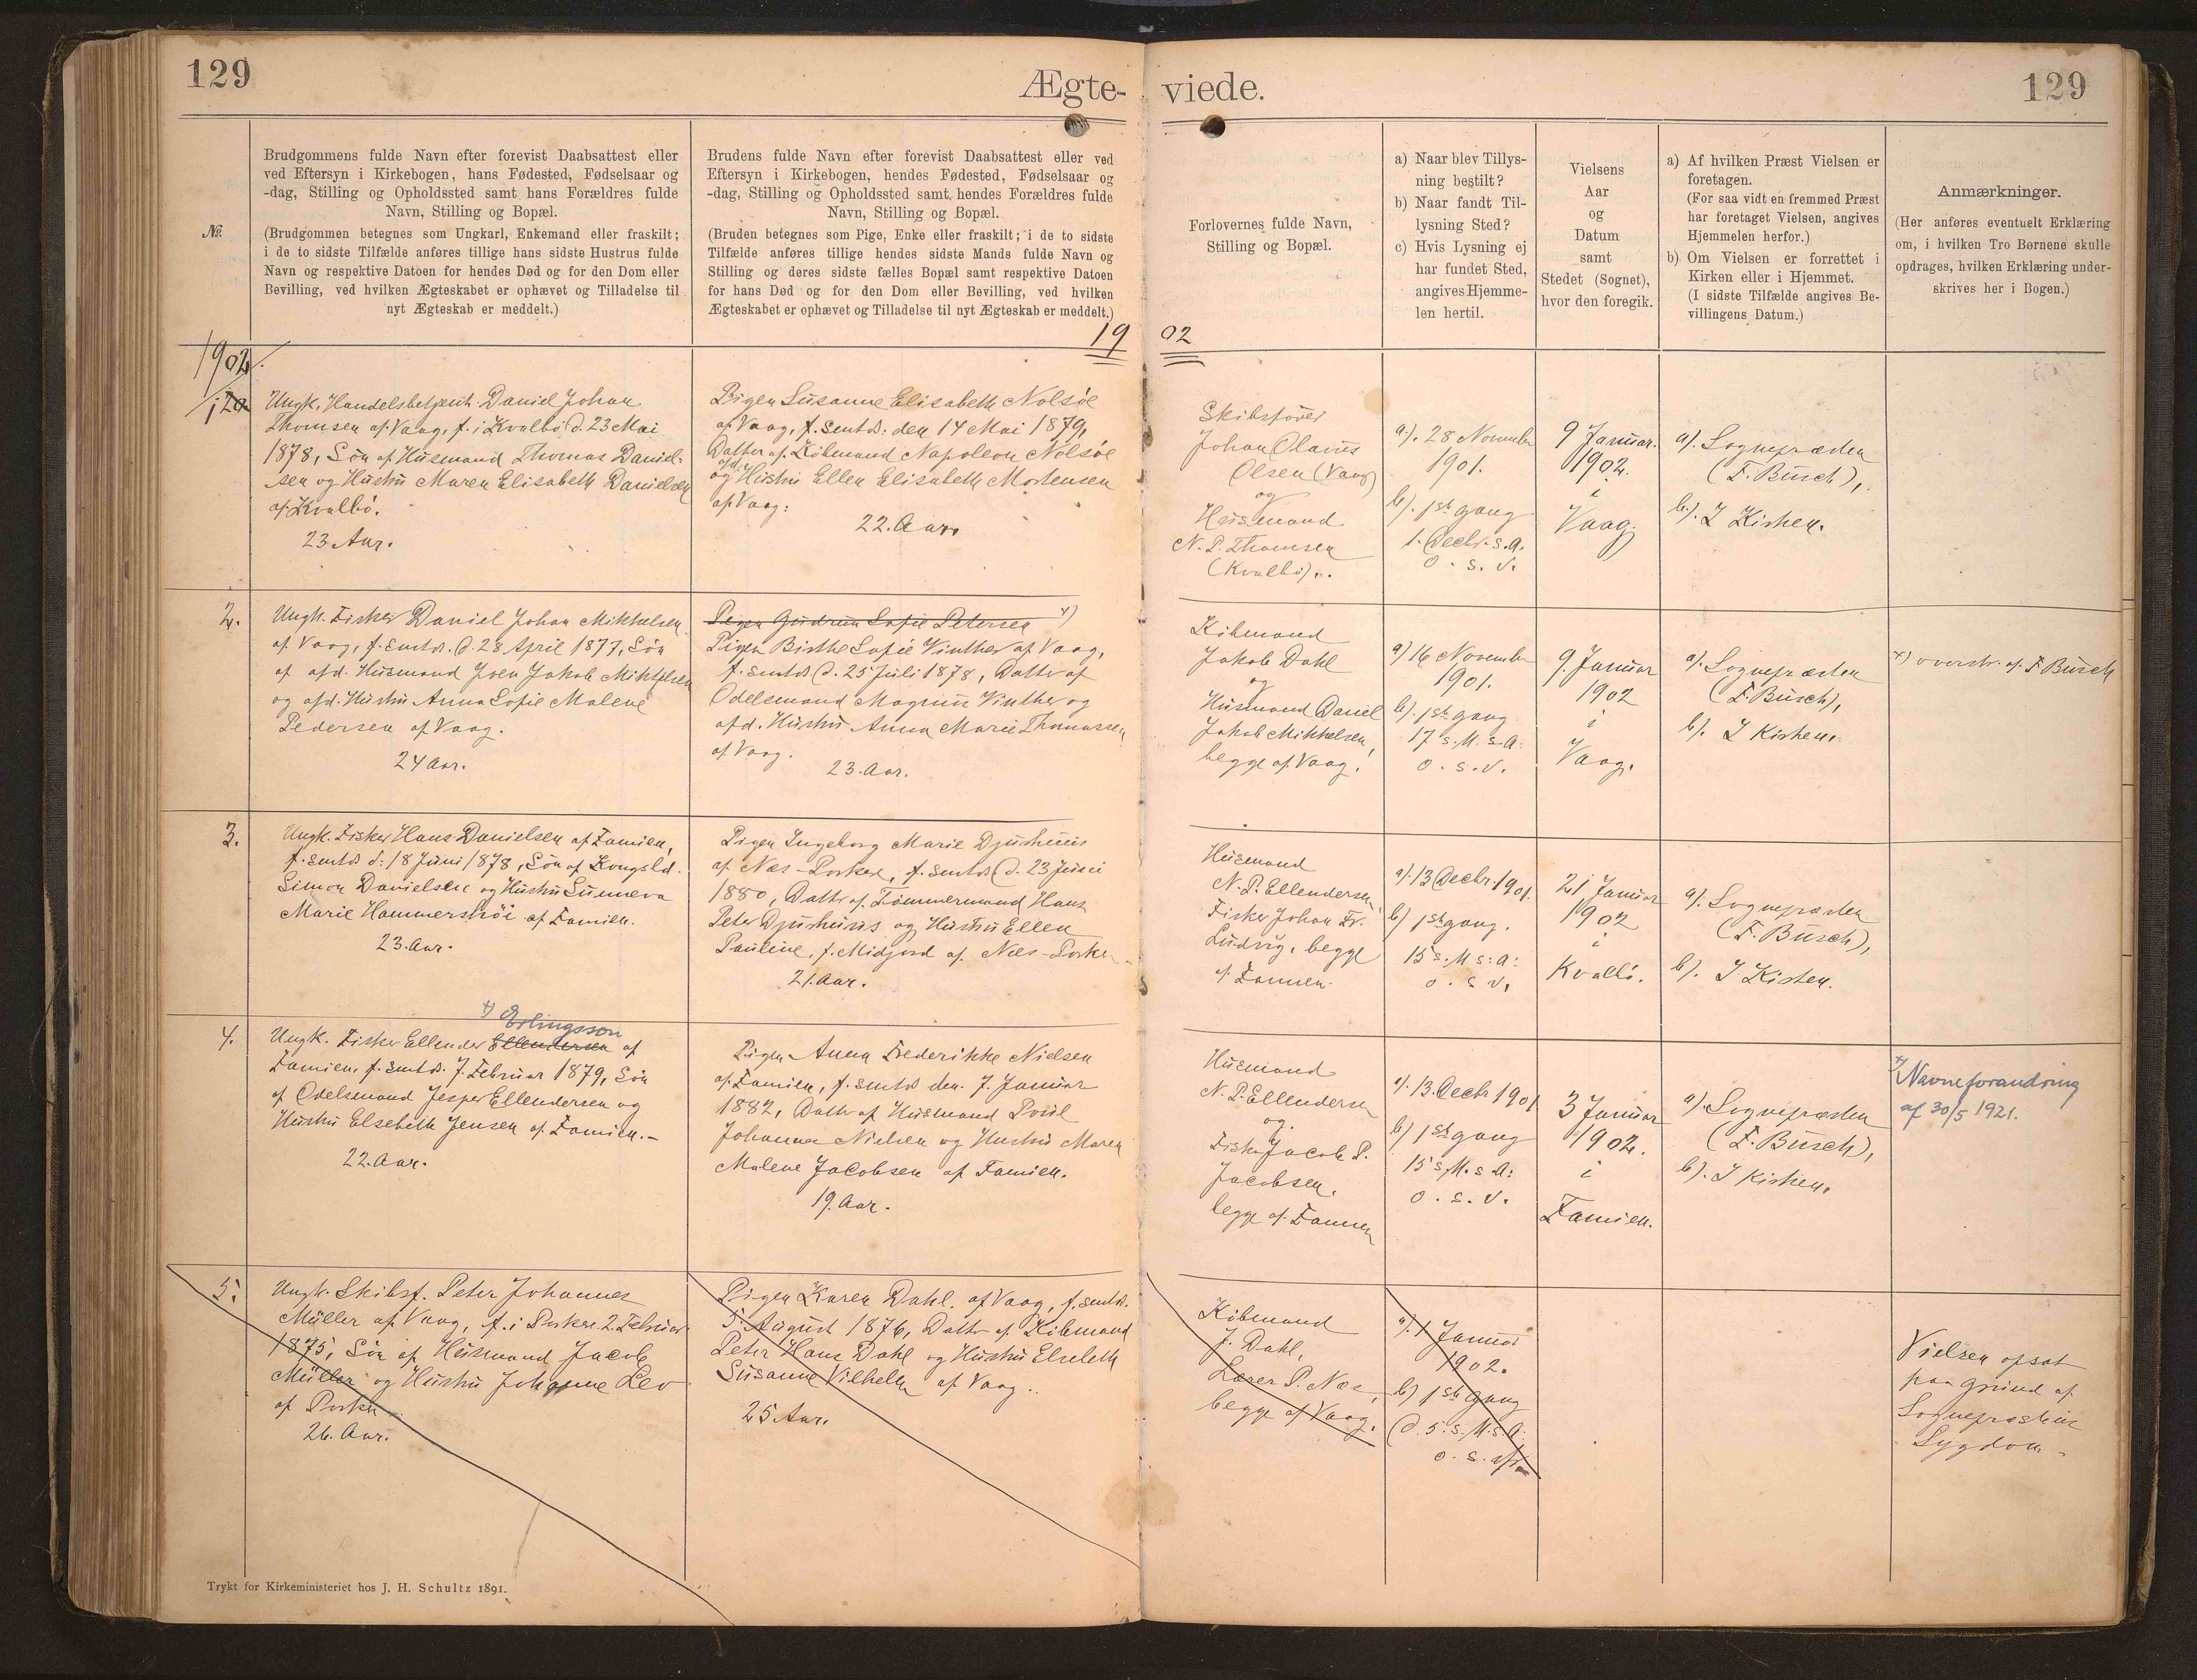 129
Ægte-
viede.
129
№
Brudgommens fulde Navn efter forevist Daabsattest eller
ved Eftersyn i Kirkebogen, hans Fødested, Fødselsaar og
-dag, Stilling og Opholdssted samt hans Forældres fulde
Navn, Stilling og Bopæl.
(Brudgommen betegnes som Ungkarl, Enkemand eller fraskilt;
i de to sidste Tilfælde anføres tillige hans sidste Hustrus fulde
Navn og respektive Datoen for hendes Død og for den Dom eller
Bevilling, ved hvilken Ægteskabet er ophævet og Tilladelse til
nyt Ægteskab er meddelt.)
Brudens fulde Navn efter forevist Daabsattest eller ved
Eftersyn i Kirkebogen, hendes Fødested, Fødselsaar og
-dag, Stilling og Opholdssted samt hendes Forældres fulde
Navn, Stilling og Bopæl.
(Bruden betegnes som Pige, Enke eller fraskilt; i de to sidste
Tilfælde anføres tillige hendes sidste Mands fulde Navn og
Stilling og deres sidste fælles Bopæl samt respektive Datoen
for hans Død og for den Dom eller Bevilling, ved hvilken
Ægteskabet er ophævet og Tilladelse til nyt Ægteskab er meddelt.)
Forlovernes fulde Navn,
Stilling og Bopæl.
a) Naar blev Tillys-
ning bestilt?
b) Naar fandt Til-
lysning Sted?
c) Hvis Lysning ej
har fundet Sted,
angives Hjemme-
len hertil.
Vielsens
Aar
og
Datum
samt
Stedet (Sognet),
hvor den foregik.
a) Af hvilken Præst Vielsen er
foretagen.
(For saa vidt en fremmed Præst
har foretaget Vielsen, angives
Hjemmelen herfor.)
b) Om Vielsen er forrettet i
Kirken eller i Hjemmet.
(I sidste Tilfælde angives Be-
villingens Datum.)
Anmærkninger.
(Her anføres eventuelt Erklæring
om, i hvilken Tro Børnene skulle
opdrages, hvilken Erklæring under-
skrives her i Bogen.)
19 02
1902.
Ungk. Handelsbetjent Daniel Johan
Thomsen af Vaag, f. i Kvalbö d. 23 Mai
1878, Sön af Husmand Thomas Daniel-
sen og Hustru Maren Elisabeth Danielsen
af Kvalbö.
23 Aar.
Pigen Susanne Elisabeth Nolsöe
af Vaag, f. smstds. den 14 Mai 1879,
Datter af Köbmand Napoleon Nolsöe
og afd. Hustru Ellen Elisabeth Mortensen
af Vaag.
22. Aar.
Skibsförer
Johan Olavus
Olsen (Vaag)
og
Husmand
N. P. Thomsen
(Kvalbö).
a). 28 November
1901.
b). 1ste gang
1. Decbr. s. A.
o. s. v.
9 Januar.
1902.
i
Vaag.
a). Sognepræsten
(F. Busch),
b). I Kirken.
2.
Ungk. Fisker Daniel Johan Mikkelsen
af Vaag, f. smstds. d. 28 April 1877, Sön
af afd. Husmand Joen Jakob Mikkelsen
og afd. Hustru Anna Sofie Malene
Pedersen af Vaag.
24 Aar.
Pigen Gudrun Sofie Petersen x)
Pigen Birthe Sofie Vinther af Vaag,
f. smstds d. 25 Juli 1878, Dattr af
Odelsmand Magnus Vinther og
afd. Hustru Anna Marie Thomassen
af Vaag.
23. Aar.
Köbmand
Jakob Dahl
og
Husmand Daniel
Jakob Mikkelsen,
begge af Vaag.
a) 16 November
1901.
b). 1ste gang
17 s. M. s. A.
o. s. v.
9. Januar
1902
i
Vaag.
a). Sognepræsten
(F. Busch),
b). I Kirken.
x) overstr. af F Busch
3.
Ungk. Fisker Hans Danielsen af Famien,
f. smstds d. 18 Juni 1878, Sön af Kongsbd.
Simon Danielsen og Hustru Sunneva
Marie Hammershöi af Famien.
23. Aar.
Pigen Ingeborg Marie Djurhuus
af Næs-Porkere, f. smstds d. 23 Juni
1880, Dattr af Tömmermand Hans
Peter Djurhuus og Hustru Ellen
Pauline, f. Midjord af Næs-Porkere
21. Aar.
Husmand
N. P. Ellendersen
Fisker Johan Fr.
Ludvig, begge
af Famien.
a). 13 Decbr. 1901.
b) 1ste gang.
15 s. M. s. A.
o. s. v.
21 Januar
1902
i
Kvalbö.
a). Sognepræsten
(F. Busch),
b). I Kirken.
4.
x) Erlingsson
Ungk. Fisker Ellender Ellendersen af
Famien, f. smstds. 7. Februar 1879, Sön
af Odelsmand Jesper Ellendersen og
Hustru Elsebeth Jensen af Famien.
22. Aar.
Pigen Anna Frederikke Nielsen
af Famien, f. smstds den 7. Januar
1882, Dattr af Husmand Poul
Johannes Nielsen og Hustru Maren
Malene Jacobsen af Famien.
19. Aar.
Husmand
N. P. Ellendersen
og
Fisker Jacob P.
Jacobsen,
begge af Famien
a). 13. Decbr 1901
b) 1ste gang
15 s. M. s A.
o. s. v.
3 Januar
1902.
i
Famien.
a). Sognepræsten
(F. Busch),
b). I Kirken.
x) Navneforandring
af 30/5 1921.
5.
Ungk. Skibsf. Peter Johannes
Müller af Vaag, f. i Porkere 2. Februar
1875, Sön af Husmand Jacob
Müller og Hustru Johanne Lev
af Porkere
26. Aar.
Pigen Karen Dahl. af Vaag, f. smstds.
5. August 1876, Dattr af Köbmand
Peter Hans Dahl og Hustru Elsebeth
Susanne Vilhelm af Vaag.
25 Aar.
Köbmand
J. Dahl,
Lærer P. Næs,
begge af Vaag.
a). 1 Januar
1902.
b) 1ste gang
d. 5. s. M. s. A.
o. s. v.
Vielsen opsat
paa Grund af
Sognepræstens
Sygdom.
Trykt for Kirkeministeriet hos J. H. Schultz 1891.